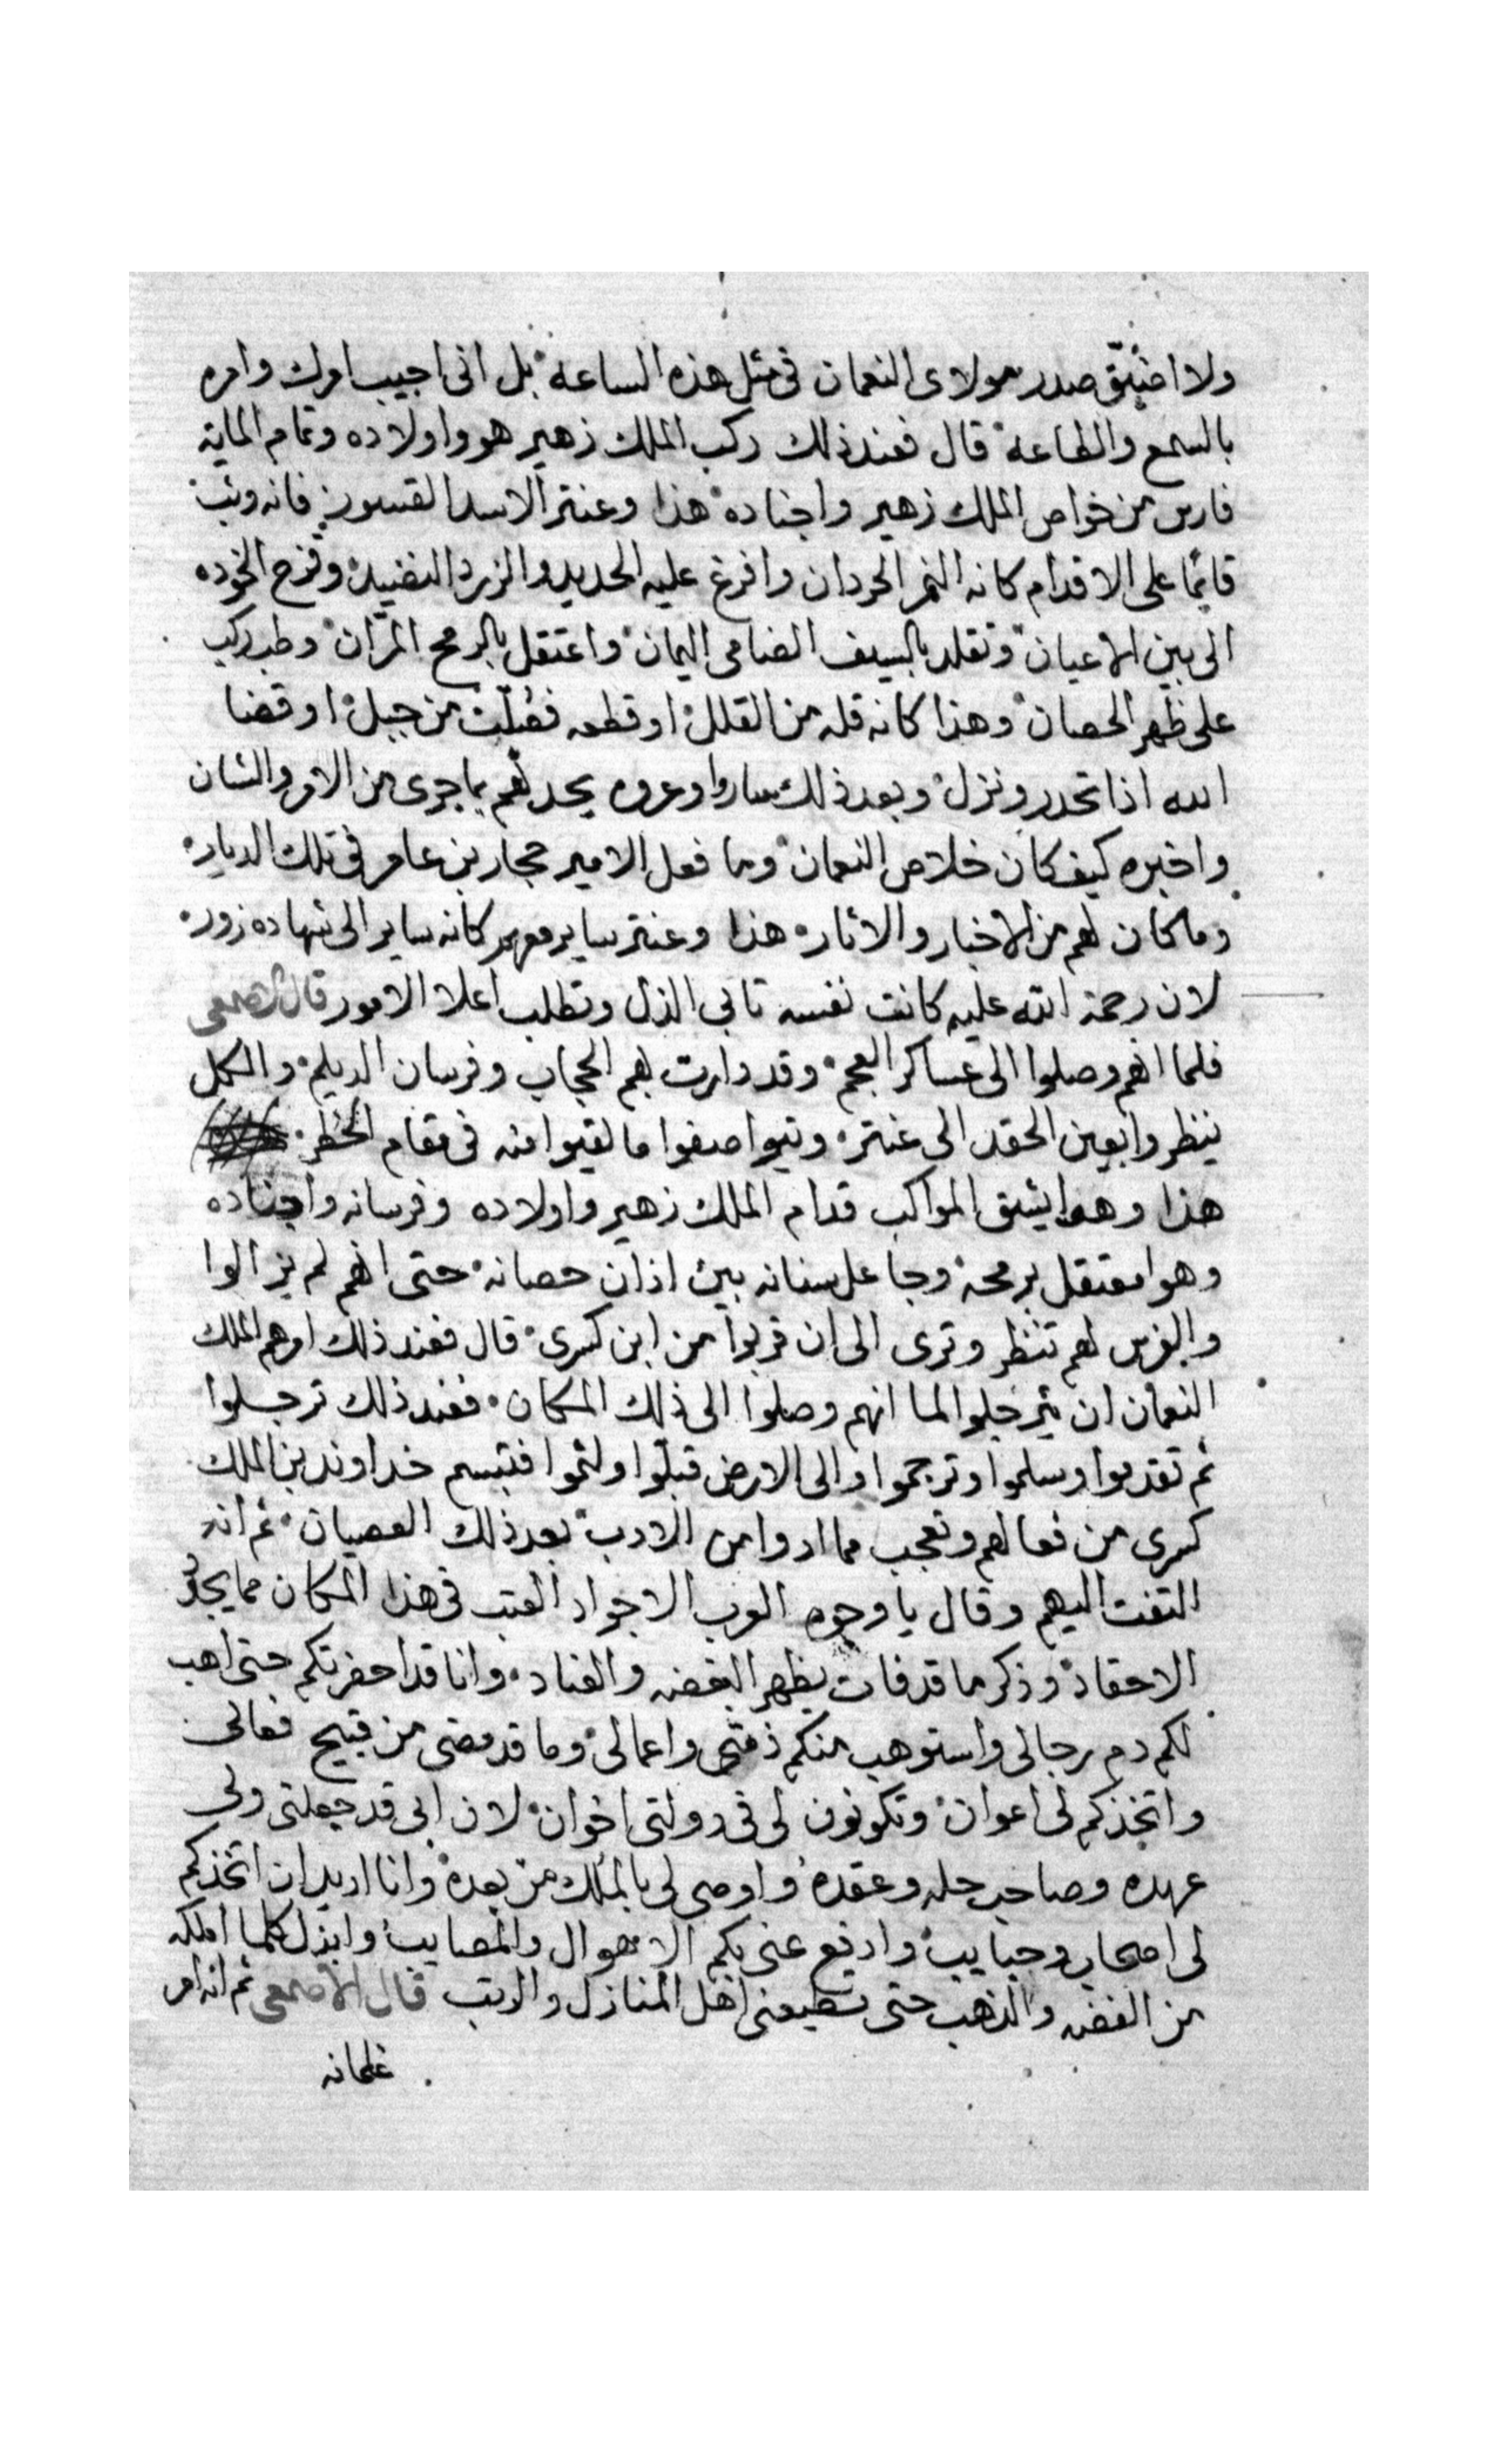 ولا اضيّق صدر مولاى النعمان فى مثل هذه الساعة بل انى اجيب امرك وامره
بالسمع والطاعة قال فعند ذلك ركب الملك زهير هو واولاده وتمام الماية
فارس من خواص الملك زهير واجناده هذا وعنتر الاسد القسور فانه وثب
قايمًا على الاقدام كانه النمر الحردان وافرغ عليه الحديد والزرد النضيد وفرح الخوده
الى بين الاعيان وتقلد بالسيف الضامى اليمان واعتقل بالرمح المرّان وطب ركب
على ظهر الحصان وهذا كانه قله من القلل او قطعه فصّلت من جبل او قضا
الله اذا تحدر ونزل وبعد ذلك ساروا وعروه يحدثهم بما جرى من الامر والشان
واخبره كيف كان خلاص النعمان وما فعل الامير حجار بن عامر فى تلك الديار
وما كان لهم من الاخبار والاثار هذا وعنتر ساير معهم كانه ساير الى شهاده زور
لان رحمة الله عليه كانت نفسه تابى الذل وتطلب اعلا الامور قال الاصمعى
فلما انهم وصلوا الى عساكر العجم وقد دارت بهم الحجاب وفرسان الديلم والكل
ينظروا بعين الحقد الى عنتر ويتواصفوا ما لقيوا منه فى مقام الخطر
هذا وهوا يشق المواكب قدام الملك زهير واولاده وفرسانه واجناده
وهوا معتقل برمحه وجاعل سنانه بين اذان حصانه حتى انهم لم يزالوا
والفرس لهم تنظر وترى الى ان قربوا من ابن كسرى قال فعند ذلك امرهم الملك
النعمان ان يترجلوا لما انهم وصلوا الى ذلك المكان فعند ذلك ترجلوا
ثم تقدموا وسلموا وترجموا والى الارض قبلّوا ولثموا فتبسم خداوند بن الملك
كسرى من فعالهم وتعجب مما ادوا من الادب بعد ذلك العصيان ثم انه
التفت اليهم وقال يا وجوه العرب الاجواد العتب فى هذا المكان مما يجدّد
الاحقاد وذكر ما قد فات يظهر البغضه والعناد وانا قد احضرتكم حتى اهب
لكم دم رجالى واستوهب منكم ذمتى واعمالى وما قد مضى من قبيح فعالى
واتخذكم لى اعوان وتكونون لى فى دولتى اخوان لان ابى قد جعلنى ولى
عهده وصاحب حله وعقده واوصى لى بالملك من بعده وانا اريد ان اتخذكم
لى اصحاب وحبايب وادفع عنى بكم الاهوال والمصايب وابذل كلما املكه
من الفضه والذهب حتى تطيعنى اهل المنازل والرتب قال الاصمعى ثم انه امر
غلمانه